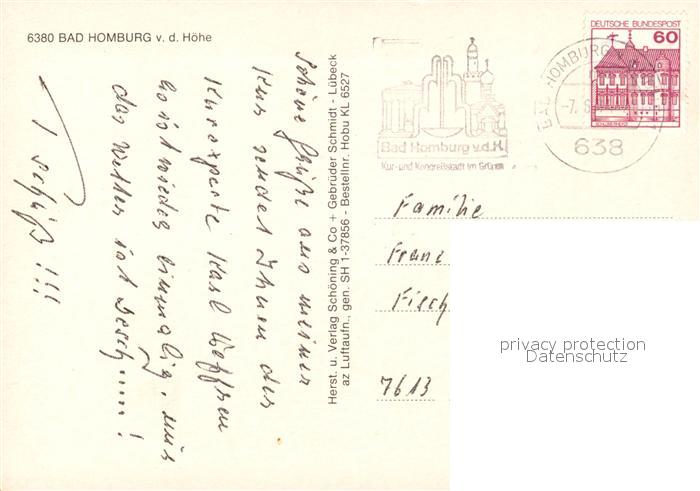 6380 BAD HOMBURG v. d. Höhe
Schöne Grüße aus meiner
Kur sendet Ihnen der
Kurexperte Karl
ist wieder einmalig, nur
das Wetter ist Besch....!
Tschüß!!!
Herst. u. Verlag Schöning & Co + Gebrüder Schmidt - Lübeck
az Luftaufn., gen. SH 1-37856 - Bestellnr. Hobu KL 6527
Bad Homburg v.d.H.
Kur- und Kongreßstadt im Grünen
BAD HOMBURG
-7.
638
DEUTSCHE BUNDESPOST
60
Familie
Franz
Fisch
7613
privacy protection
Datenschutz